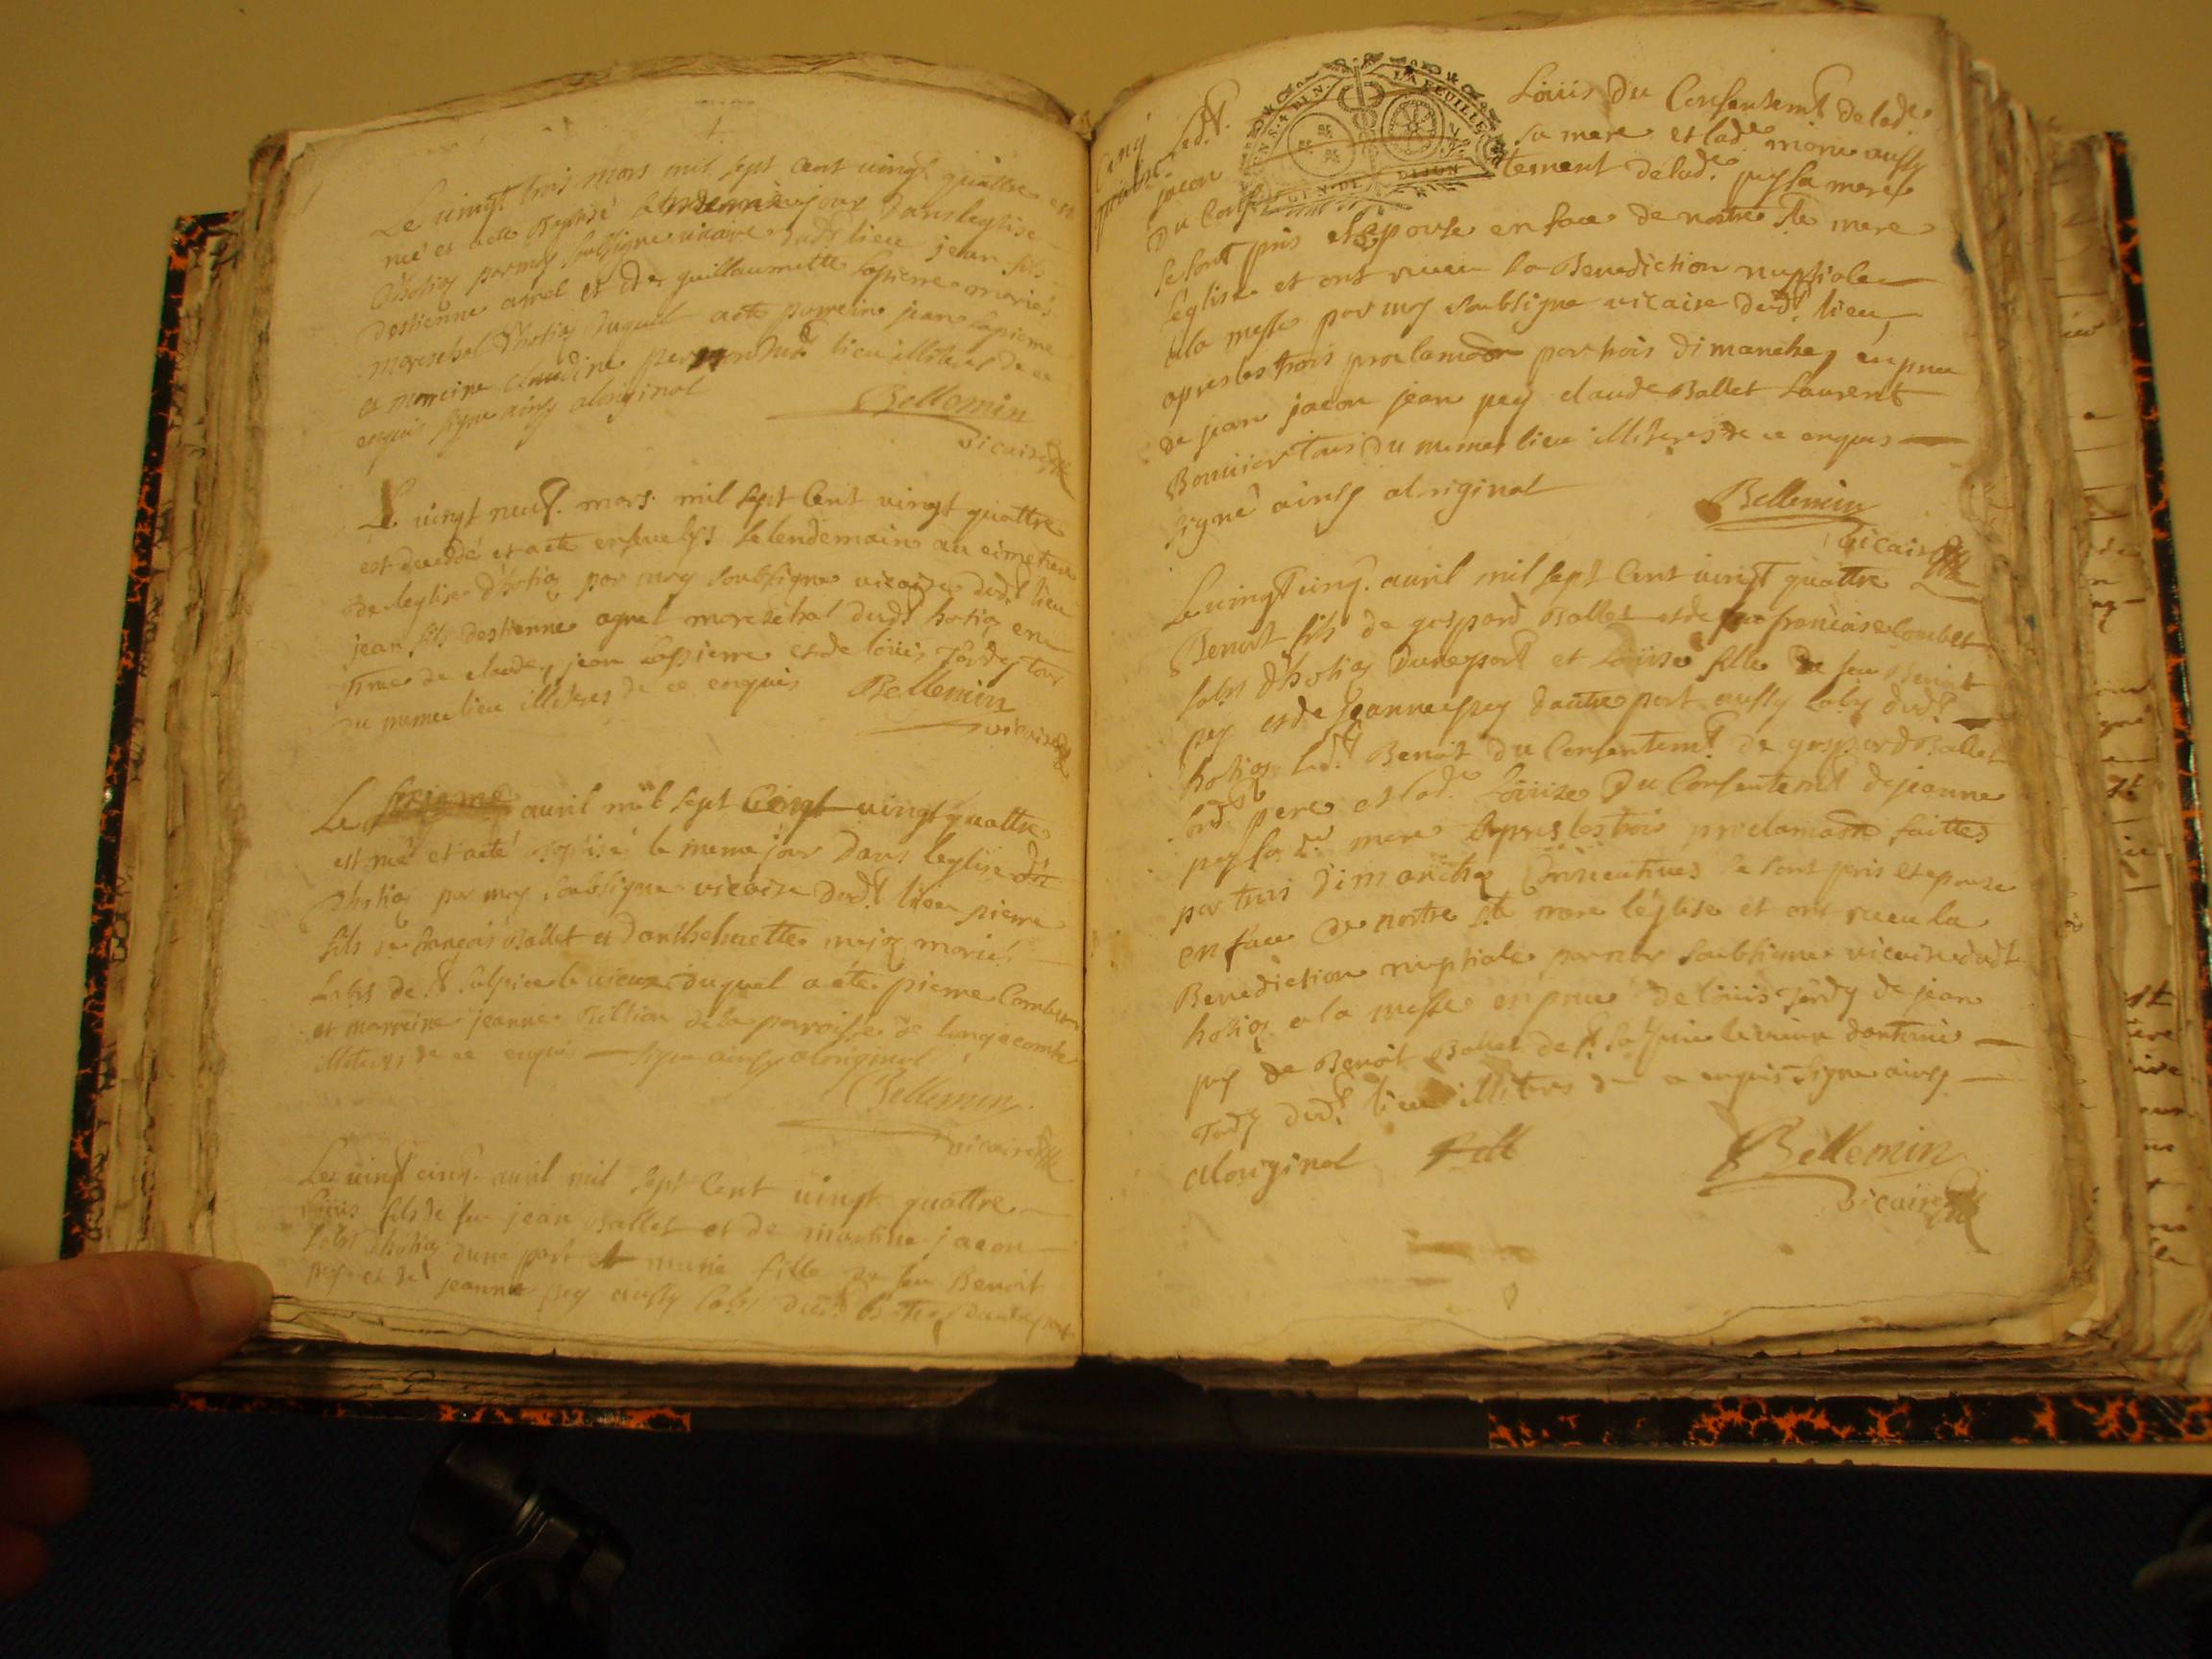 Le vingt trois mars mil sept cent vingt quattre est
né et acte Baptisé le meme jour dans leglise
dhotig par moy soubsigne vicaire dudt lieu jean fils
destienne agnel et de guillaumette lapierre mariés
mareschal dhotig duquel acte parrein jean lapierre
et marreine claudine dudt lieu illiteres de ce
enquis signe ainsy aloriginal
Bellemin
vicaire
Le vingt neuf. mars mil sept Cent vingt quattre
est decedé et acte ensevelys le lendemain au cimetiere
de leglise dhotig par moy soubsigne vicaire dudt lieu
jean fils destienne agnel mareschal dudt hotig en
pnce de claude, jean lapierre et de loüis Tardy tous
du meme lieu illiteres de ce enquis Bellemin
vicaire
Le avril mil sept vingt quattre
est né et acté Baptisé le meme jour dans leglise
dhotig par moy soubsigne vicaire dudt lieu pierre
fils de françois Ballet et danthelmette mariés
labrs de St Sulpice le vieux duquel a été pierre Combet
et marreine jeanne de la parroisse de longecombe
illiteres de ce enquis signe ainsy aloriginal
Bellemin
vicaire
Le vingt cinq. avril mil sept Cent vingt quattre
Loüis fils de feu jean Ballet et de martine jacon
labrs dhotig dune part et marie fille de feu Benoit
pey et de jeanne pey aussy labrs dudt hotig dautre part
Ledt. Loüis du Consentemt de lade.
jacon sa mere et lade marie aussy
du Consentement de lade. pey sa mere
se sont pris et epouse en face de nostre ste mere
leglise et ont receu la Benediction nuptiale
a la messe par moy soubsigne vicaire dudt. lieu,
apres les trois proclamaon par trois dimanches en pnce
de jean jacon jean pey claude Ballet Laurent
Bouvier tous du meme lieu illiteres de ce enquis
signé ainsy aloriginal
Bellemin
vicaire
Le vingt cinq. avril mil sept Cent vingt quattre
Benoit fils de gaspard Ballet et de feu francoise Combet
labrs dhotig dune part et Loüise fille de feu Benoit
pey et de jeanne pey dautre part aussy labrs dudt.
hotig ledt. Benoit du Consentemt. de gaspard Ballet
sondt pere et lade. Loüise du Consentemt de jeanne
pey sa de. mere apres les trois proclamaon faittes
par trois dimanches Consecutives se sont pris et epouse
en face de nostre ste mere léglise et ont receu la
Benediction nuptiale par moy soubsigne vicaire dudt
hotig a la messe en pnce de loüis Tardy de jean
pey de Benoit Ballet de St Sulpice le vieux dantoine
Tardy dudt. lieu illiteres de ce enquis signe ainsy
aloriginal
Bellemin
vicaire
UN S. 4 DEN. LA FEUILLE
GEN. DE DIJON